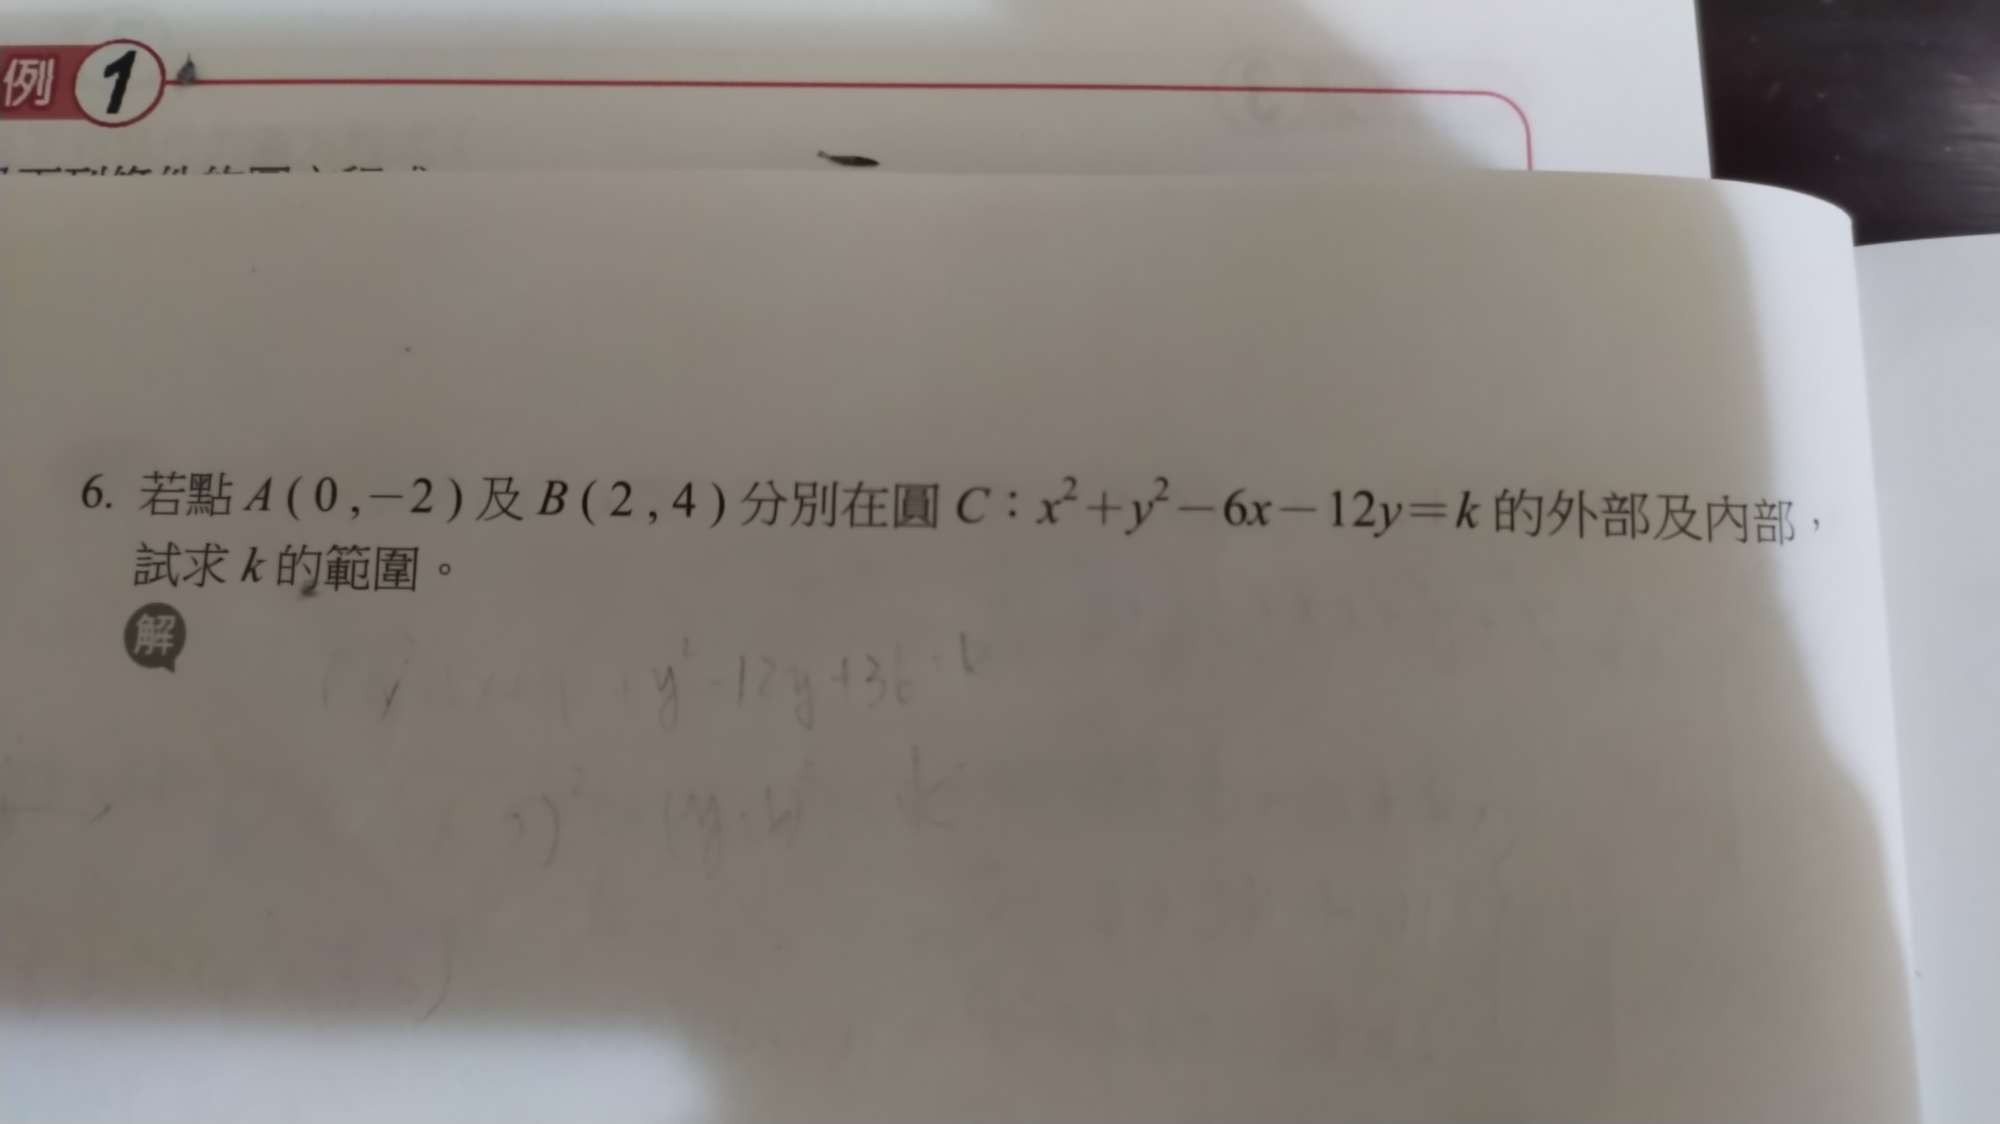 例 1
6. 若點 A ( 0 ,−2 ) 及 B ( 2 , 4 ) 分別在圓 C：x²+y²−6x−12y=k 的外部及內部，
試求 k 的範圍。
解
+y²-12y+36